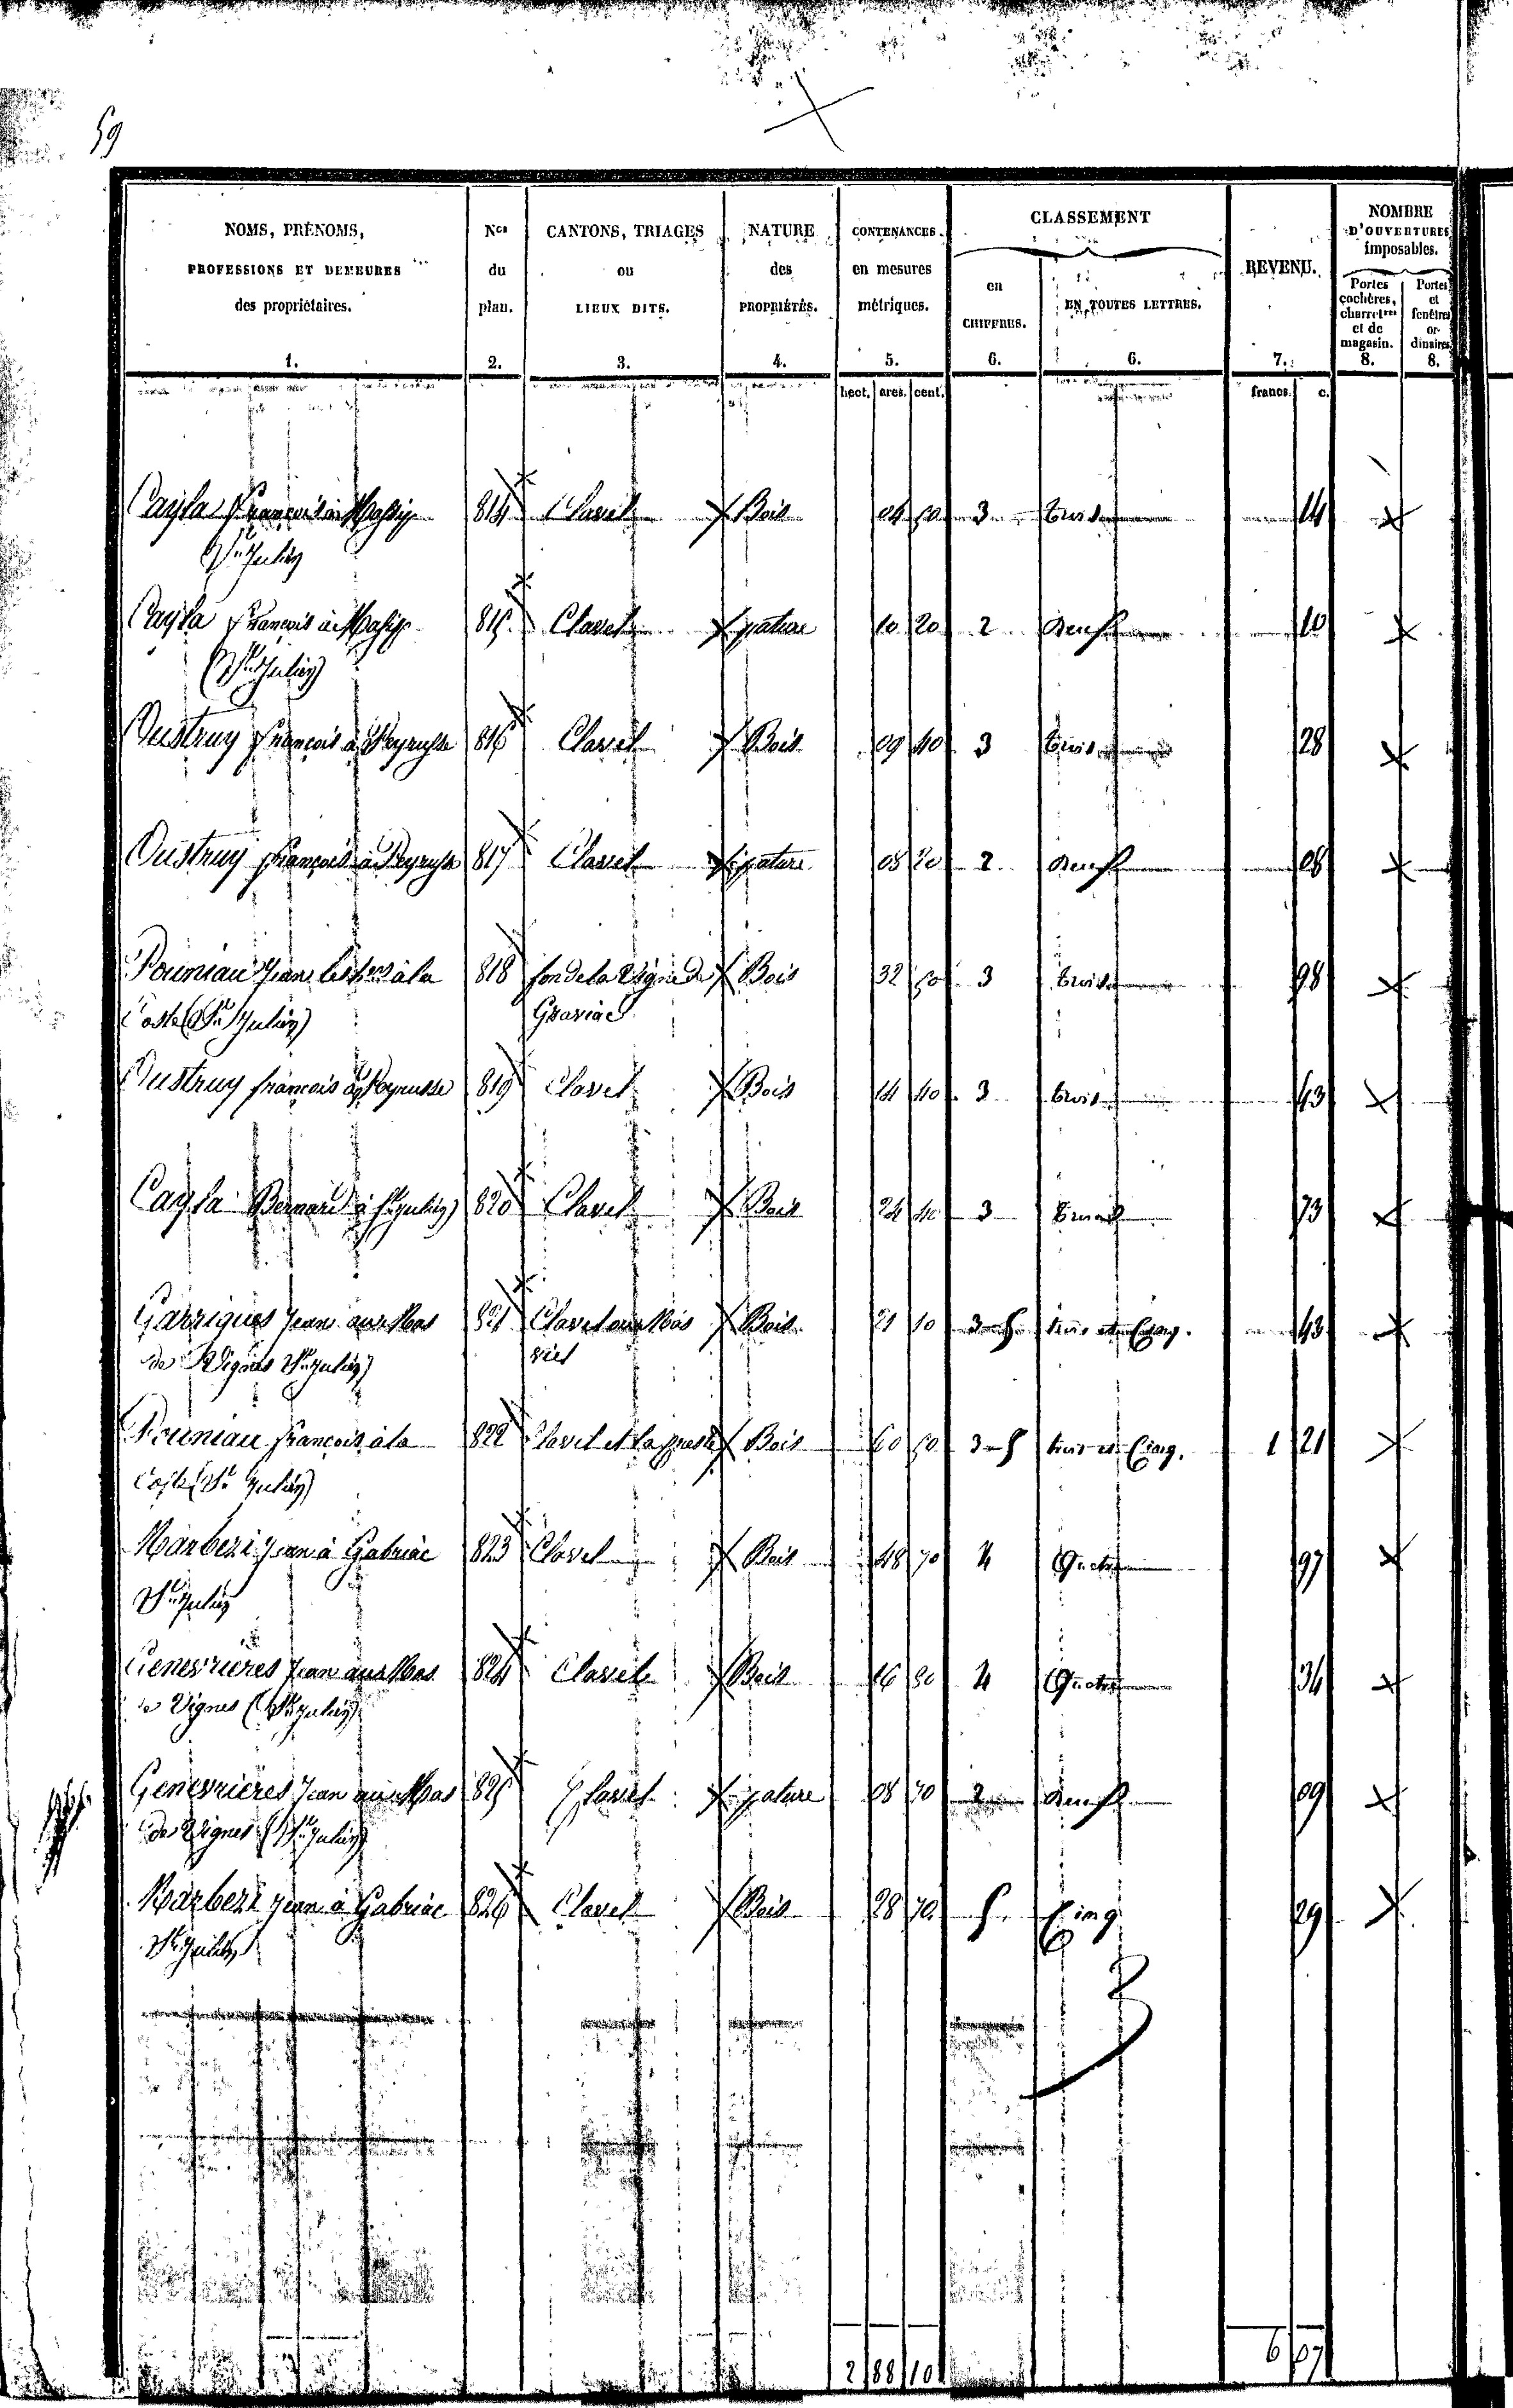 59
NOMS, PRÉNOMS,
PROFESSIONS ET DEMEURES
des propriétaires.
1.
Nos
du
plan.
2.
CANTONS, TRIAGES
ou
LIEUX DITS.
3.
NATURE
des
PROPRIÉTÉS.
4.
CONTENANCES
en mesures
métriques.
5.
CLASSEMENT
en
CHIFFRES.
6.
EN TOUTES LETTRES.
6.
REVENU.
7.
NOMBRE
D'OUVERTURES
imposables.
Portes
cochères,
charretres
et de
magasin.
8.
Portes
et
fenêtres
or-
dinaires.
8.
hect. ares. cent. francs. c.
Cayla François à 814 Clavel Bois 04 50 3 trois 14
St Julien
Cayla François à 815 Clavel pature 10 20 2 deux 10
(St Julien)
Dustruy François à Peyrusse 816 Clavel Bois 09 40 3 trois 28
Dustruy François à Peyrusse 817 Clavel pature 08 20 2 deux 08
Pouniau Jean à la 818 fon de la Vigne de Bois 32 50 3 trois 98
Coste (St Julien) Graviac
Dustruy françois à Peyrusse 819 Clavel Bois 14 40 3 trois 43
Cayla Bernard à St Julien 820 Clavel Bois 24 40 3 trois 73
Garrigues Jean au Mas 821 Clavel Bois 21 10 3-5 trois et Cinq. 43
de Vignes St Julien)
Pouniau françois à la 822 Clavel et Bois 60 50 3-5 trois et Cinq. 1 21
Coste (St Julien)
Marbezi Jean à Gabriac 823 Clavel Bois 48 70 4 Quatre 97
St Julien
Genevrières Jean au Mas 824 Clavel Bois 16 80 4 Quatre 34
de Vignes (St Julien)
Genevrières Jean au Mas 825 Clavel pature 08 70 2 deux 09
de Vignes (St Julien)
Marbezi Jean à Gabriac 826 Clavel Bois 28 70 5 Cinq 29
St Julien
2 88 10 6 07